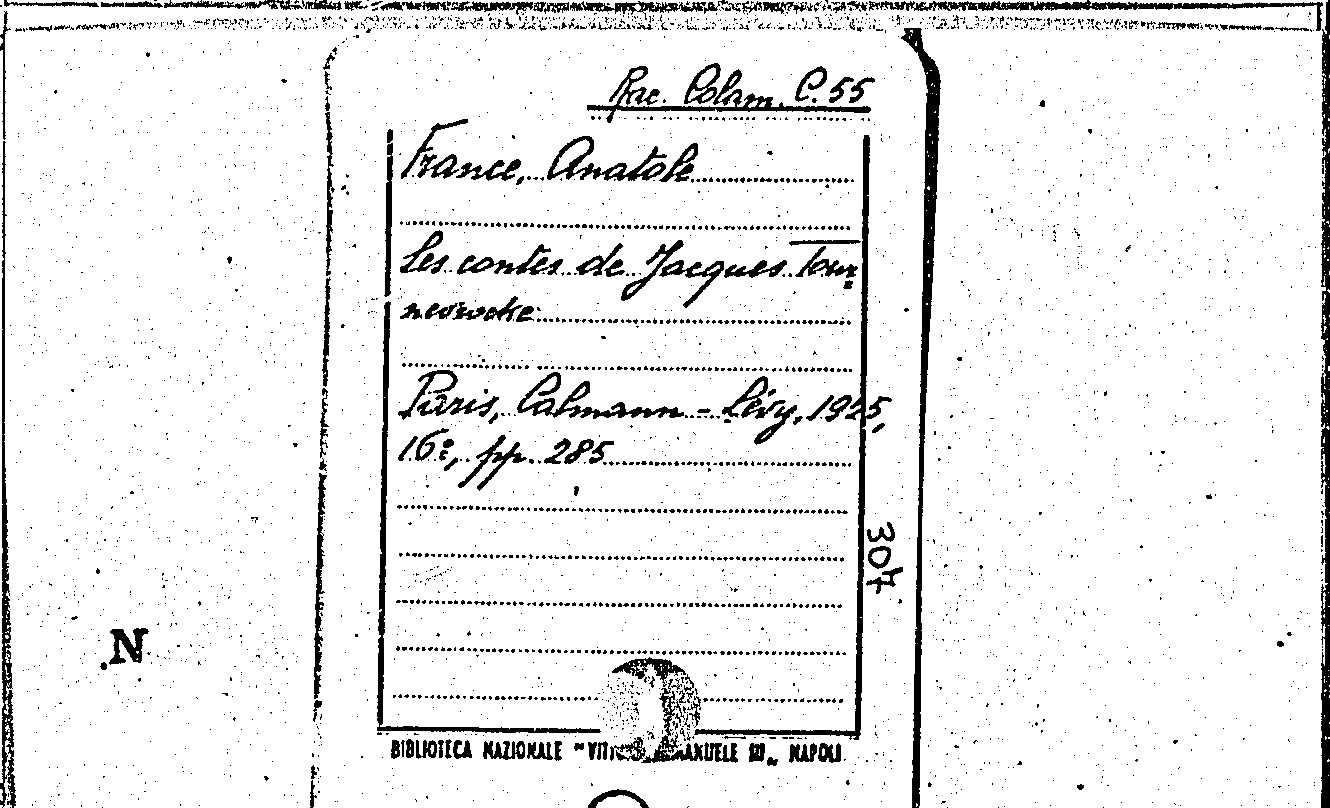 Rac. Colam. C. 55
France, Anatole
Les contes de Jacques Tour
nebroche
Paris, Calmann - Lévy, 1925,
16º, pp. 285
304
N
BIBLIOTECA NAZIONALE "VITT EMANUELE III„ NAPOLI